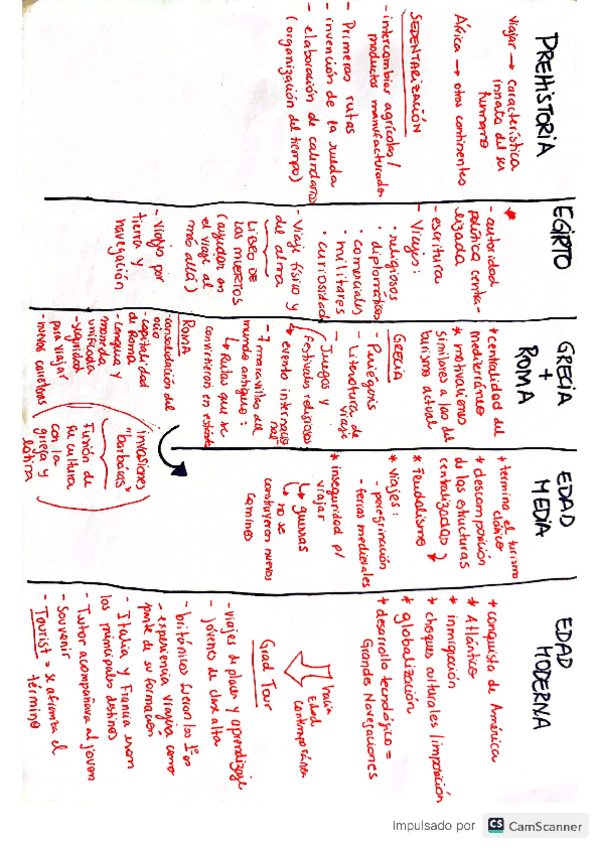 PREHISTORIA
viajar → característica
innata del ser
humano
África → otros continentes
SEDENTARIZACIÓN
- intercambios agrícolas /
productos manufacturados
- Primeras rutas
- invención de la rueda
- elaboración de calendario
(organización del tiempo)
EGIPTO
- autoridad
política centra-
lizada
- escritura
- Viajes:
• religiosos
• diplomáticos
• comerciales
• militares
• curiosidad
- Viaje físico y
del alma
LIBRO DE
LOS MUERTOS
(ayudan en
el viaje al
más allá)
- viajes por
tierra y
navegación
GRECIA
+
ROMA
+ centralidad del
mediterráneo
* motivaciones
similares a las del
turismo actual
GRECIA
- Periegesis
- Literatura de
viaje
Juegos y
Festivales religiosos
↳ evento internacio
nal
- 7 maravillas del
mundo antiguo:
↳ Rutas que se
convirtieron en estándar
ROMA
- consolidación del
ocio
- capitalidad
de Roma
- Lengua y
moneda
unificada
- seguridad
para viajar
- nuevas carreteras
invasiones
"bárbaras"
Fusión de
su cultura
con la
griega y
latina
EDAD
MEDIA
+ termina el turismo
clásico
+ descomposición
de las estructuras
centralizadas
* Feudalismo
* viajes:
- peregrinación
- ferias medievales
* inseguridad p/
viajar
↳ guerras
↳ no se
construyeron nuevos
caminos
EDAD
MODERNA
+ conquista de América
* Atlántico
* inmigración
+ choques culturales / imposición
* globalización
+ desarrollo tecnológico =
Grandes Navegaciones
hacia
Edad
Contemporánea
Grad Tour
- viajes de placer y aprendizaje
- jóvenes de clase alta
- británicos fueron los 1ºos
- experiencia viajera como
parte de su formación
- Italia y Francia eran
los principales destinos
- Tutor acompañaba al joven
- Souvenir
- Tourist = se afianza el
término
Impulsado por CS CamScanner